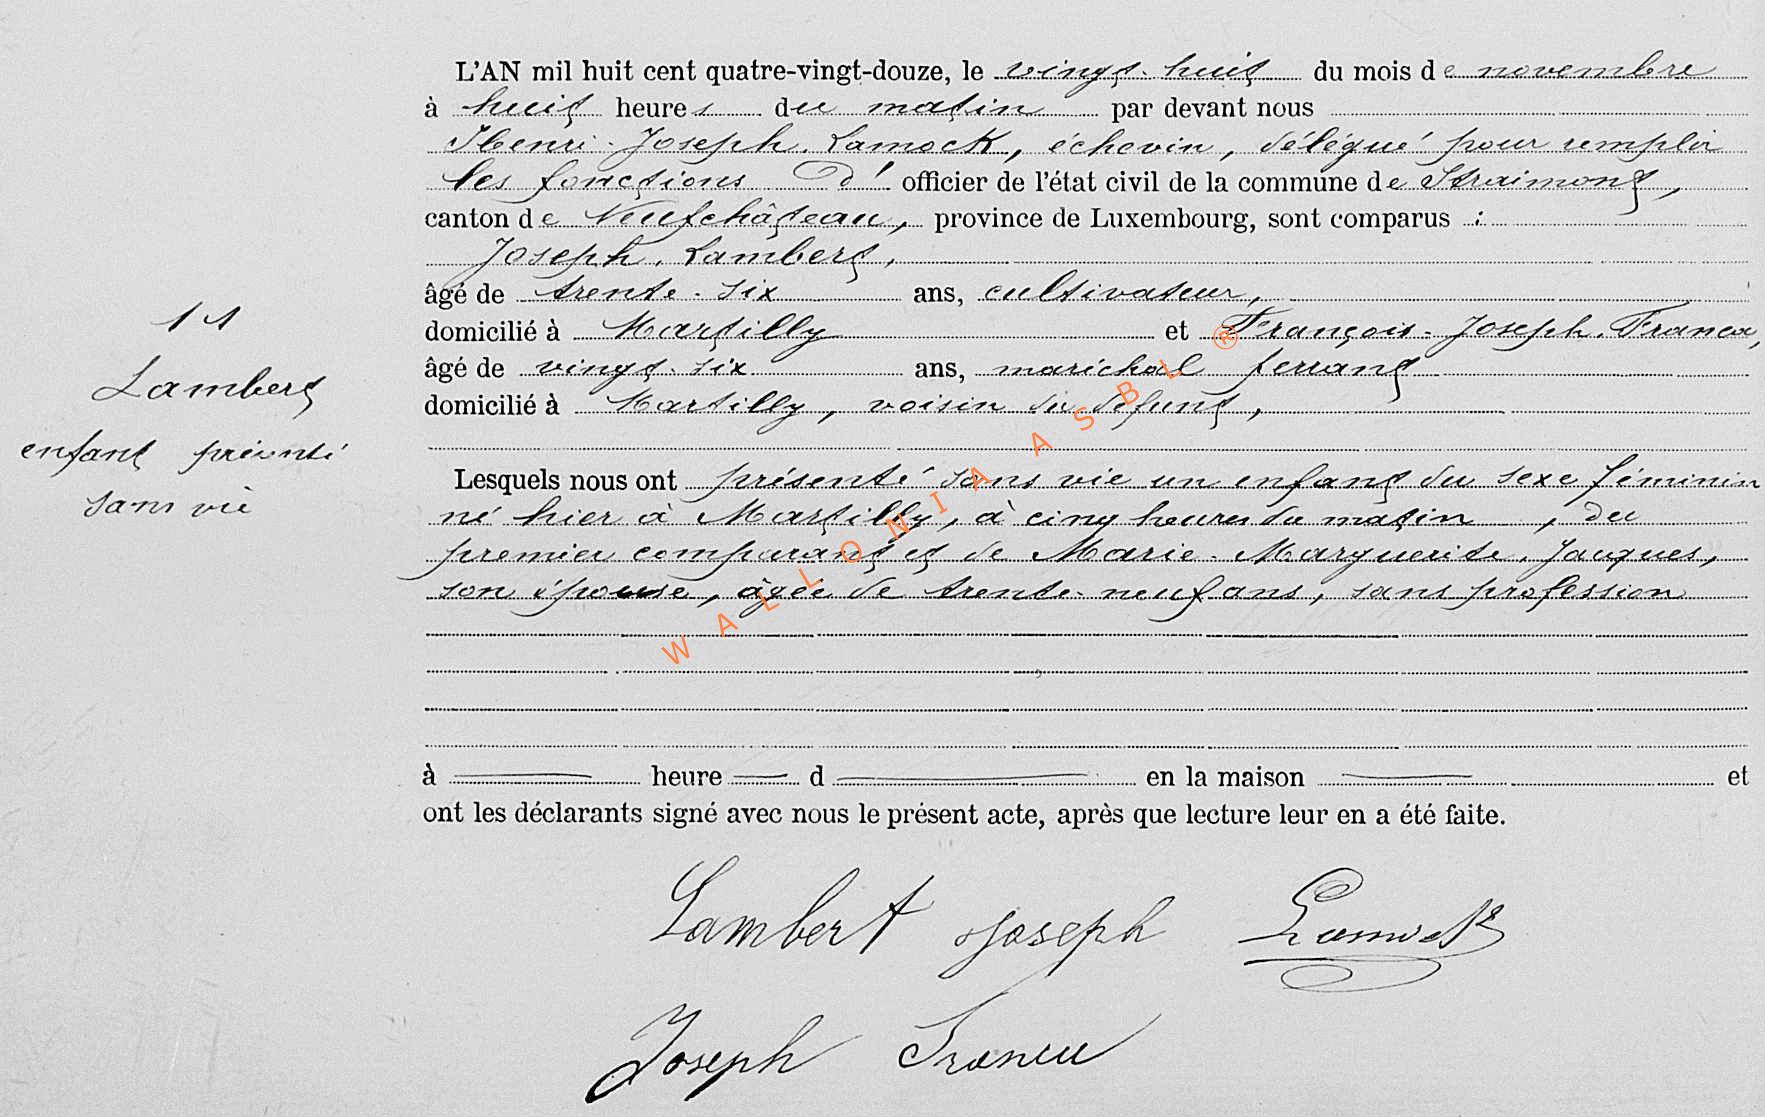 L'AN mil huit cent quatre-vingt-douze, le vingt-huit du mois de novembre
à huit heures du matin par devant nous
Henri-Joseph Lamock, échevin, délégué pour remplir
les fonctions d' officier de l'état civil de la commune de Straimont,
canton de Neufchâteau, province de Luxembourg, sont comparus :
Joseph Lambert,
âgé de trente-six ans, cultivateur,
domicilié à Martilly et François-Joseph
âgé de vingt-six ans, maréchal ferrant
domicilié à Martilly, voisin du défunt,
11
Lambert
enfant présenté
sans vie
Lesquels nous ont présenté sans vie un enfant du sexe féminin
né hier à Martilly, à cinq heures du matin, du
premier comparant et de Marie-Marguerite Jacques,
son épouse, âgée de trente-neuf ans, sans profession
à heure d en la maison et
ont les déclarants signé avec nous le présent acte, après que lecture leur en a été faite.
Lambert Joseph Lamock
Joseph
WALLONIA ASBL ®